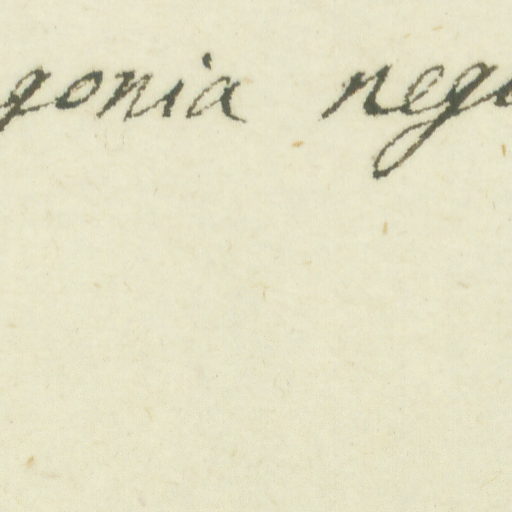 gonia neg